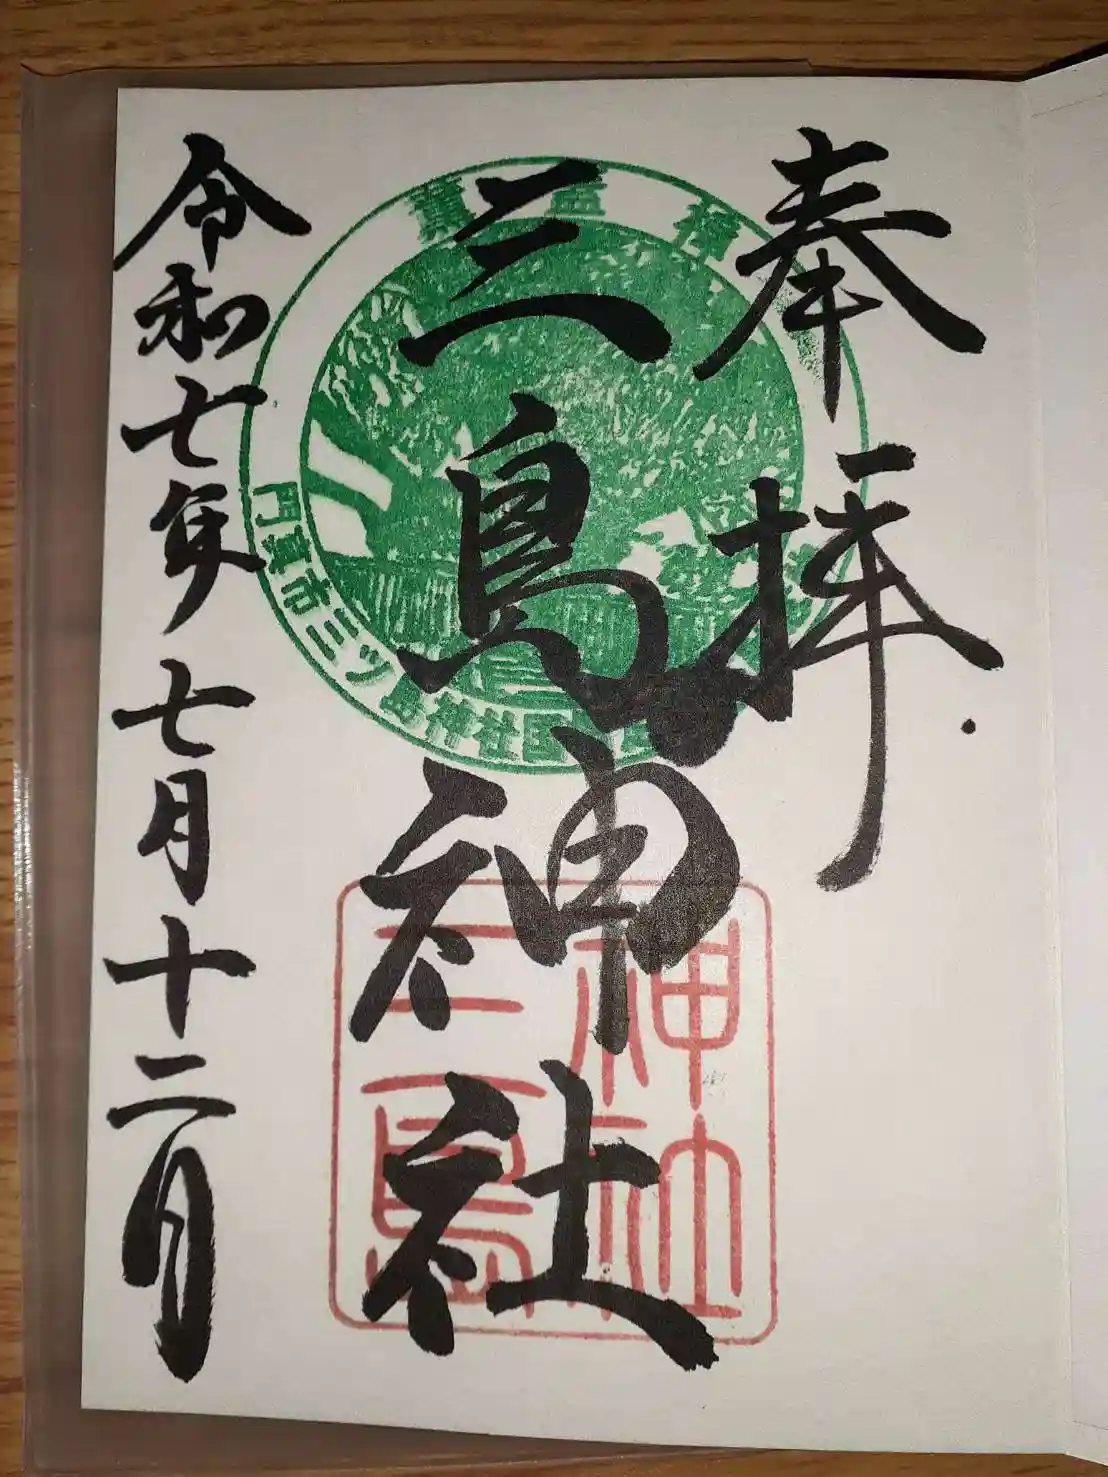 奉拝
三島神社
令和七年七月十二日
薫蓋樟
門真市三ツ島神社国
神社
三島